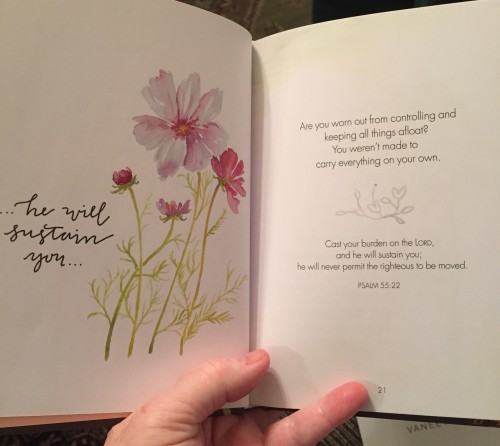 ...he will
sustain
you...
Are you worn out from controlling and
keeping all things afloat?
You weren't made to
carry everything on your own.
Cast your burden on the LORD,
and he will sustain you;
he will never permit the righteous to be moved.
PSALM 55:22
21